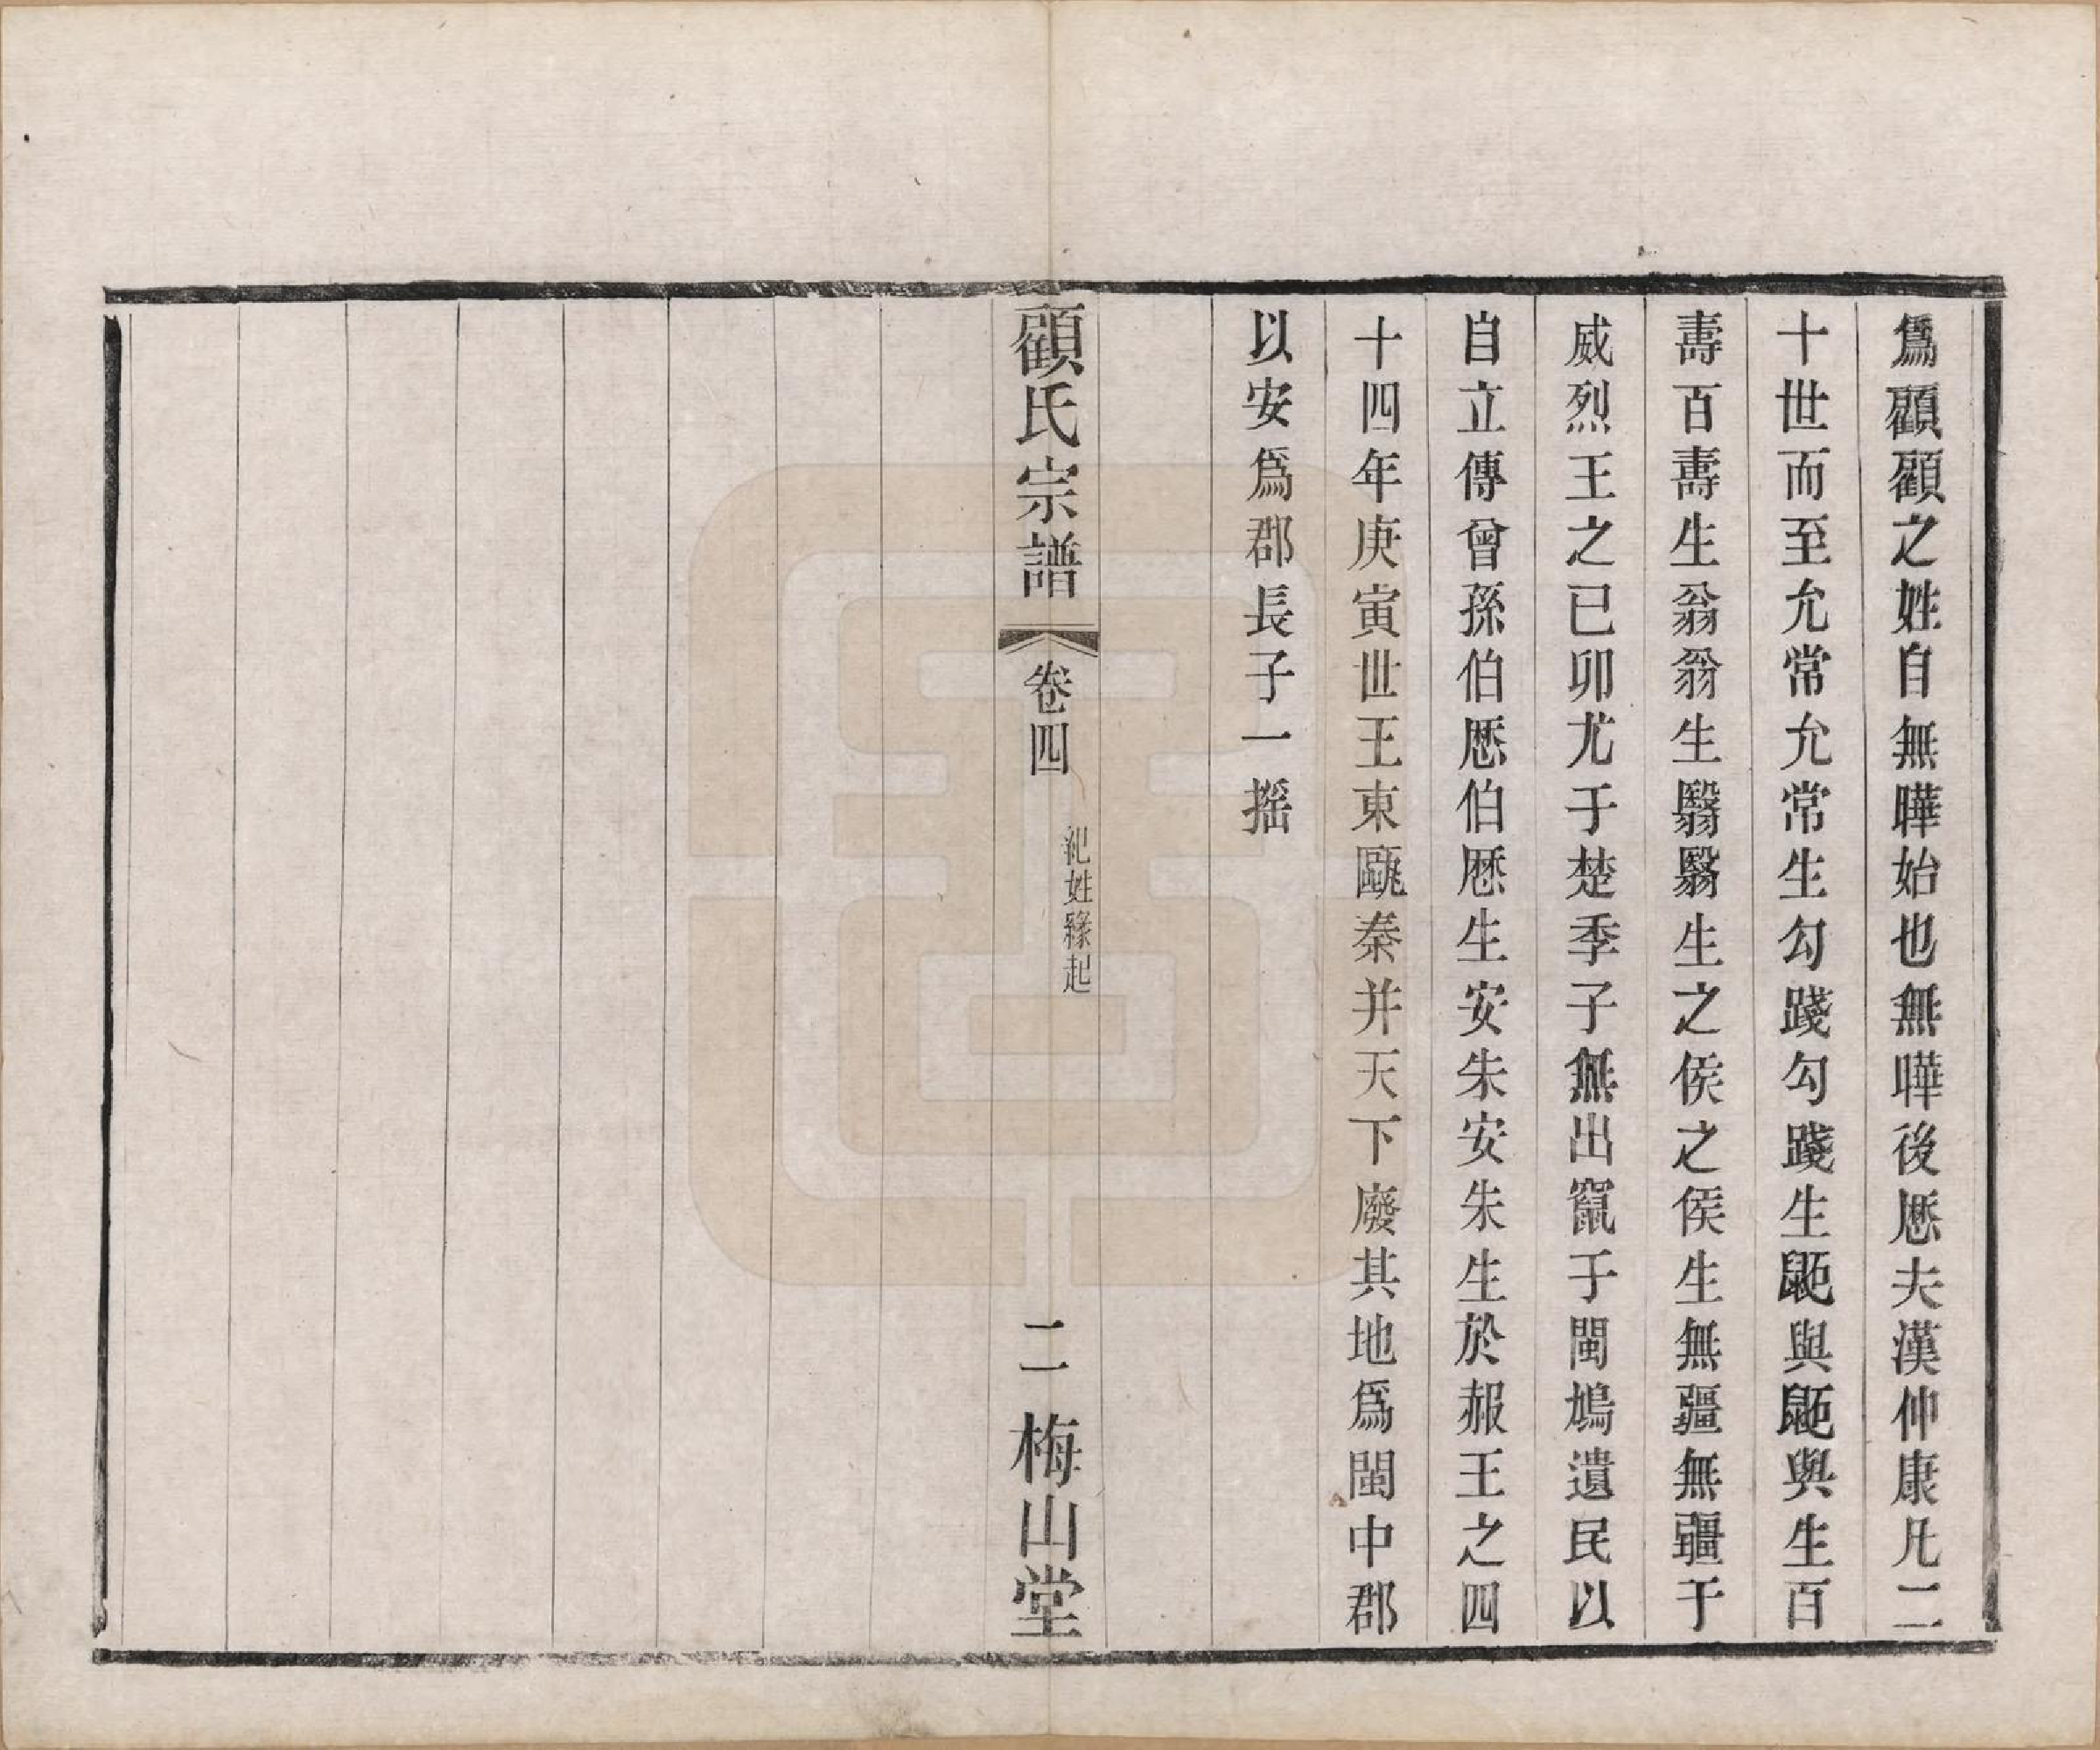 爲顧顧之姓自無曄始也無曄後歷夫漢仲康凡二
十世而至允常允常生勾踐勾踐生鼫與鼫與生百
壽百壽生翁翁生翳翳生之侯之侯生無疆無疆于
威烈王之已卯尤于楚季子無出竄于閩鳩遺民以
自立傳曾孫伯歷伯歷生安朱安朱生於赧王之四
十四年庚寅世王東甌秦并天下廢其地爲閩中郡
以安爲郡長子一摇
顧氏宗譜
卷四
紀姓緣起
二
梅山堂